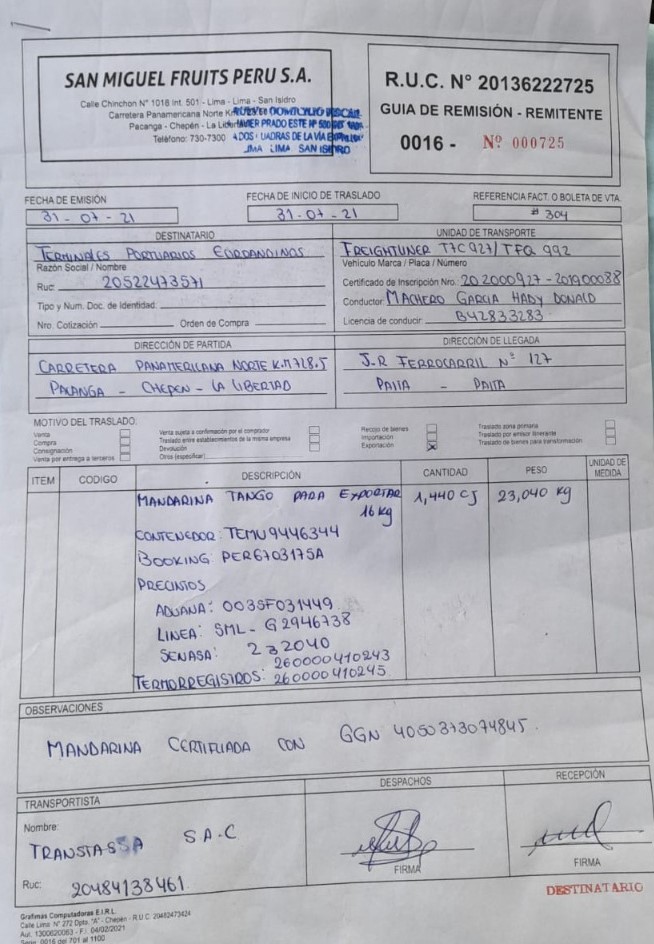 SAN MIGUEL FRUITS PERU S.A.
Calle Chinchon N° 1018 Int. 501 - Lima - Lima - San Isidro
Carretera Panamericana Norte
Pacanga - Chepén - La
Teléfono: 730-7300
JAVIER PRADO ESTE Nº
LIMA LIMA SAN ISIDRO
R.U.C. N° 20136222725
GUIA DE REMISIÓN - REMITENTE
0016 - Nº 000725
FECHA DE EMISIÓN
31-07-21
FECHA DE INICIO DE TRASLADO
31-07-21
REFERENCIA FACT. O BOLETA DE VTA.
# 304
DESTINATARIO
TERMINALES PORTUARIOS EUROANDINOS
Razón Social / Nombre
Ruc: 20522473571
Tipo y Num. Doc. de Identidad.
Nro. Cotización: Orden de Compra
UNIDAD DE TRANSPORTE
T7C927/TFQ 992
Vehículo Marca / Placa / Número
Certificado de Inscripción Nro. 202000927-201900088
Conductor: MACHERO GARCIA HADY DONALD
Licencia de conducir B42833283
DIRECCIÓN DE PARTIDA
CARRETERA PANAMERICANA NORTE K.m 728.5
PACANGA - CHEPEN - LA LIBERTAD
DIRECCIÓN DE LLEGADA
J.R FERROCARRIL Nº 127
PAITA - PAITA
MOTIVO DEL TRASLADO:
Venta
Compra
Consignación
Venta por entrega a terceros
Venta sujeta a confirmación por el comprador
Traslado entre establecimientos de la misma empresa
Devolución
Otros (especificar)
Recojo de bienes
Importación
Exportación X
Traslado zona primaria
Traslado por emisor itinerante
Traslado de bienes para transformación
ITEM CODIGO DESCRIPCIÓN CANTIDAD PESO UNIDAD DE MEDIDA
MANDARINA TANGO PARA EXPORTAR 1,440 CJ 23,040 kg
16 kg
CONTENEDOR: TEMU9446344
BOOKING: PER6703175A
PRECINTOS
ADUANA: 003SF031449
LINEA: SML-G2946738
SENASA: 232040
260000410243
TERMORREGISTROS: 260000410245
OBSERVACIONES
MANDARINA CERTIFICADA CON GGN 4050373074845.
TRANSPORTISTA
Nombre:
TRANSTASSA S.A.C
Ruc: 20484138461
DESPACHOS
FIRMA
RECEPCIÓN
FIRMA
DESTINATARIO
Grafimas Computadoras E.I.R.L.
Calle Lima N° 272 Dpto. "A" - Chepén - R.U.C. 20482473424
Aut. 1300620063 - F.I. 04/02/2021
Serie: 0016 del 701 al 1100